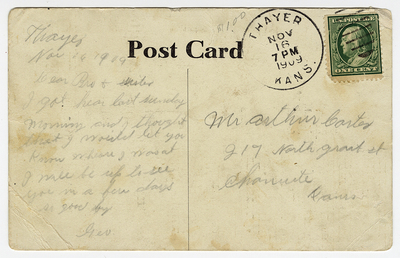 Thayer
Nov 16 1909
Dear Bro & sister
I got hear last sunday
Morning and thought
that I would let you
Know where I was at
I will be up to see
you in a few days
so good by
Geo
Post Card
THAYER
NOV
16
7 PM
1909
KANS.
U.S. POSTAGE
ONE CENT
Mr arthur Carter
217 North grant st
Chanute
Kans